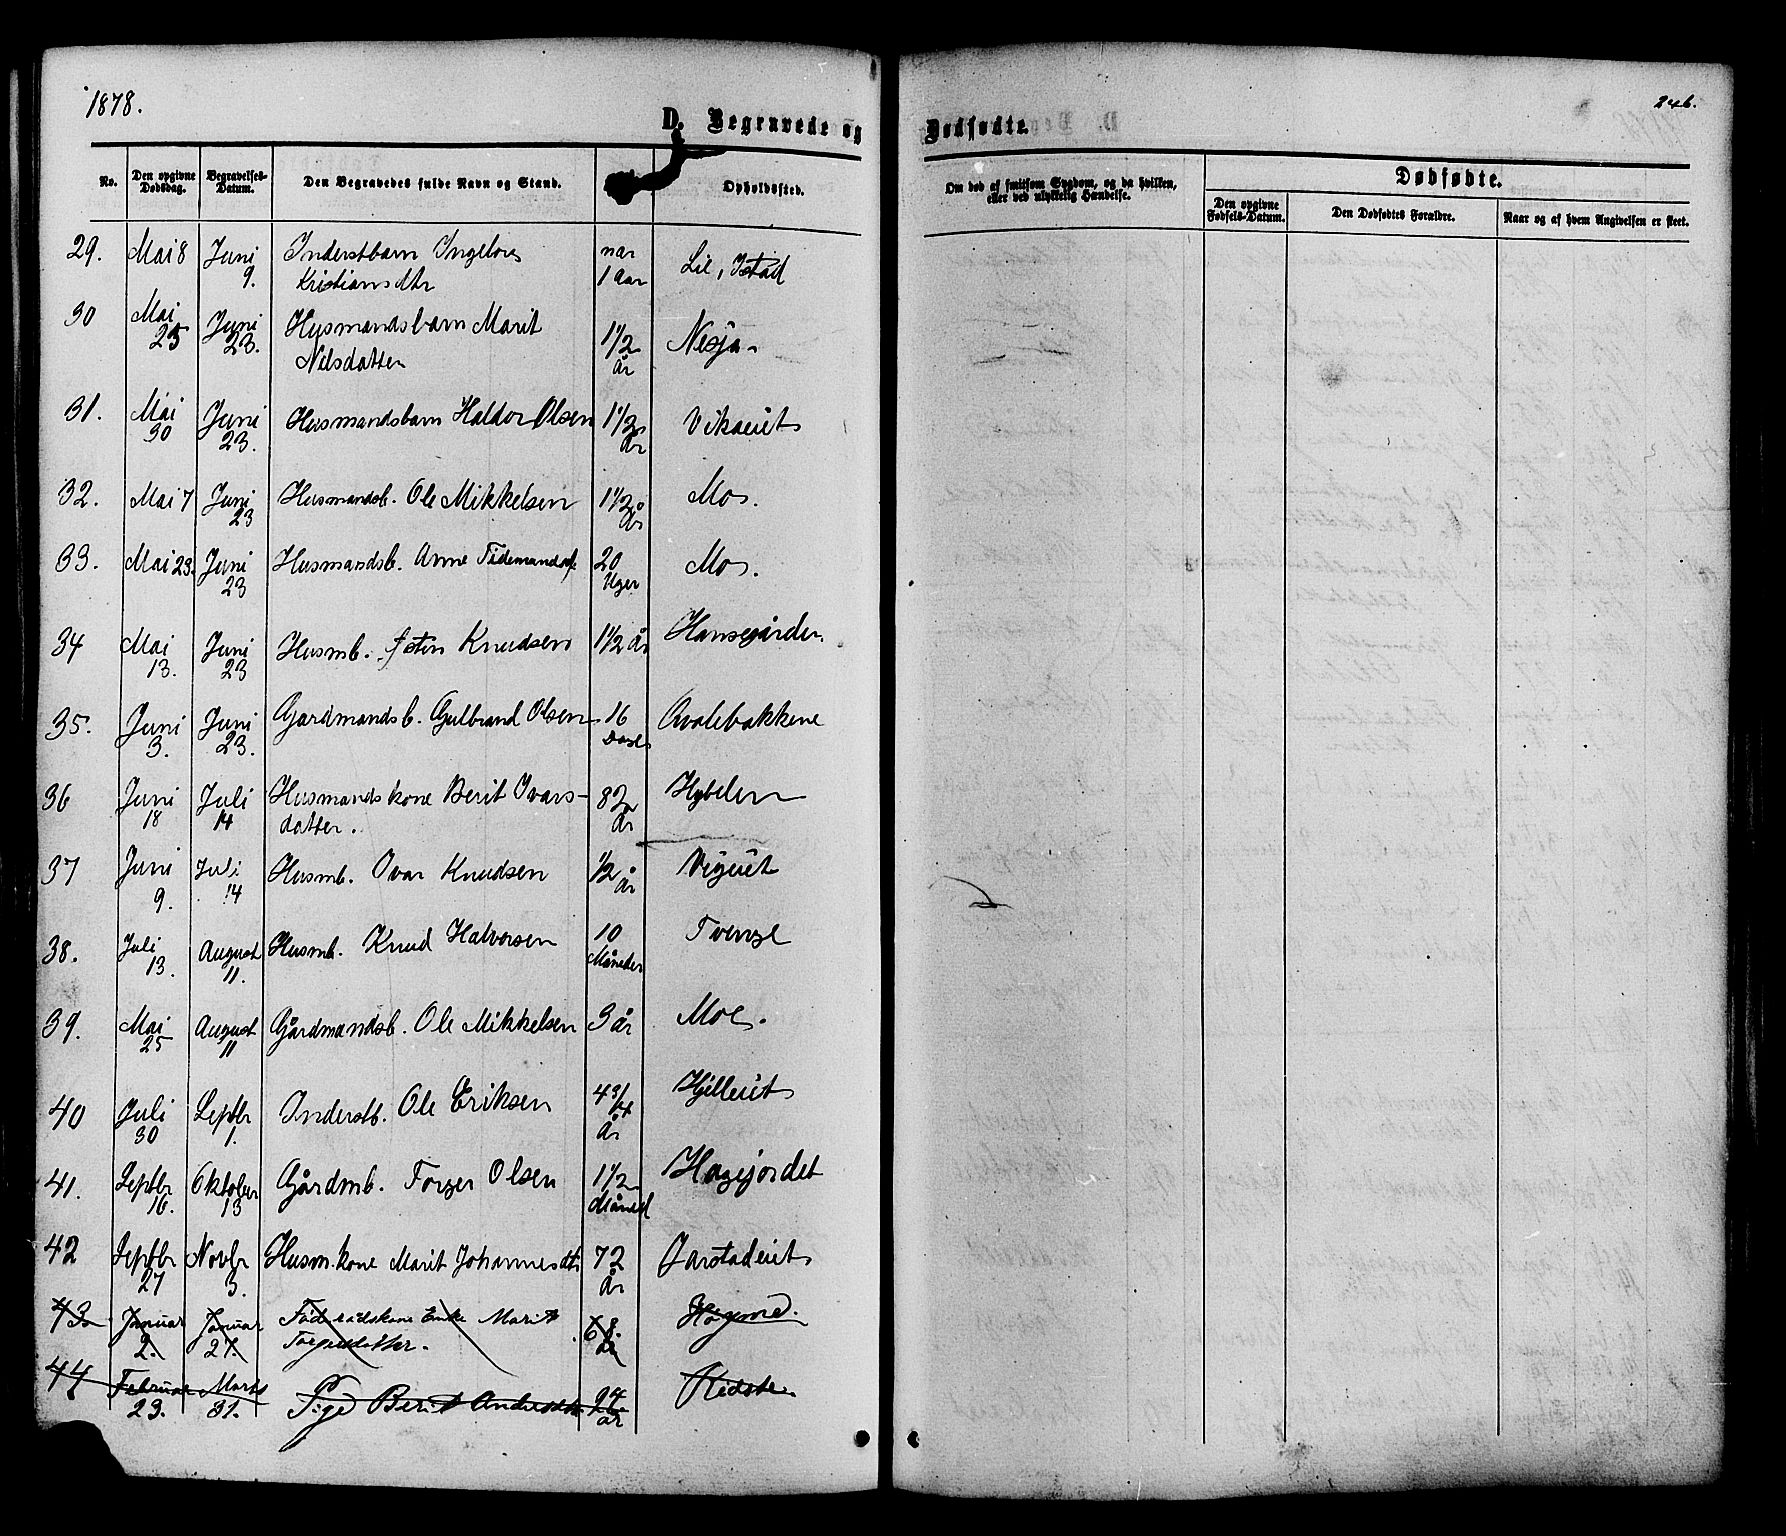 1878.
246.
D. Begravede og Dødfødte.
No.
Den opgivne Dødsdag.
Begravelses-Datum.
Den Begravedes fulde Navn og Stand.
Opholdssted.
Om død af smitsom Sygdom, og da hvilken, eller ved ulykkelig Hændelse.
Dødfødte.
Den opgivne Fødsels-Datum.
Den Dødfødtes Forældre.
Naar og af hvem Angivelsen er skeet.
29. Mai 8 Juni 9. Inderstbarn Ingebor Kristiansdtr nær 1 Aar Lie, Istad
30 Mai 25 Juni 23. Husmandsbarn Marit Nilsdatter 1 1/2 År Nesja
31. Mai 30 Juni 23. Husmandsbarn Haldor Olsen 1 1/2 År Vikaeiet
32. Mai 7 Juni 23 Husmandsb. Ole Mikkelsen 1 1/2 År Mo.
33. Mai 23. Juni 23 Husmandsb. Anne Tidemandsd. 20 Uger Mo.
34 Mai 13. Juni 23 Husmb. Østen Knudsen 1 1/2 År Hansegården.
35. Juni 3. Juni 23. Gardmandsb. Gulbrand Olsen 16 Dage Kvalebakkene
36 Juni 18 Juli 14 Husmandskone Berit Ivarsdatter. 82 År
37 Juni 9. Juli 14 Husmb. Ivar Knudsen 1/2 år
38. Juli 13. August 11. Husmb. Knud Halvorsen 10 Måneder Tvenge
39. Mai 25 August 11 Gårdmandsb. Ole Mikkelsen 3 år Moe.
40 Juli 30 Septbr 1. Inderstb. Ole Eriksen 4 3/4 År
41. Septbr 16. Oktober 13 Gårdmb. Torger Olsen 1 1/2 Måned Hagejordet
42 Septbr 27 Novbr 3. Husm.kone Marit Johannesdtr 72 År Jarstadeiet
43 Januar 2. Januar 27. Føderådskone Enke Marit 68 år
44 Februar 23. Marts 31. Pige Berit Andersdtr. 24 år